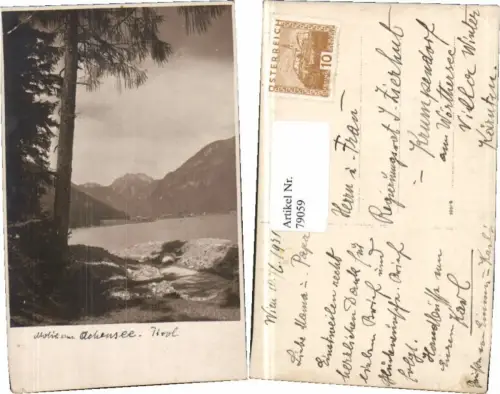 Motiv am Achensee. Tirol
ÖSTERREICH
10
Artikel Nr.
79059
Herrn u. Frau
Regierungsrat J. Zierhut
Krumpendorf
am Wörthersee
Villa Winter
Kärnten.
Wien 1931
Liebe Mama u. Papa
Einstweilen recht
herzlichen Dank für
lieben Brief und
Glückwünsche. Brief
folgt.
Handküsse von
Eurem Karl